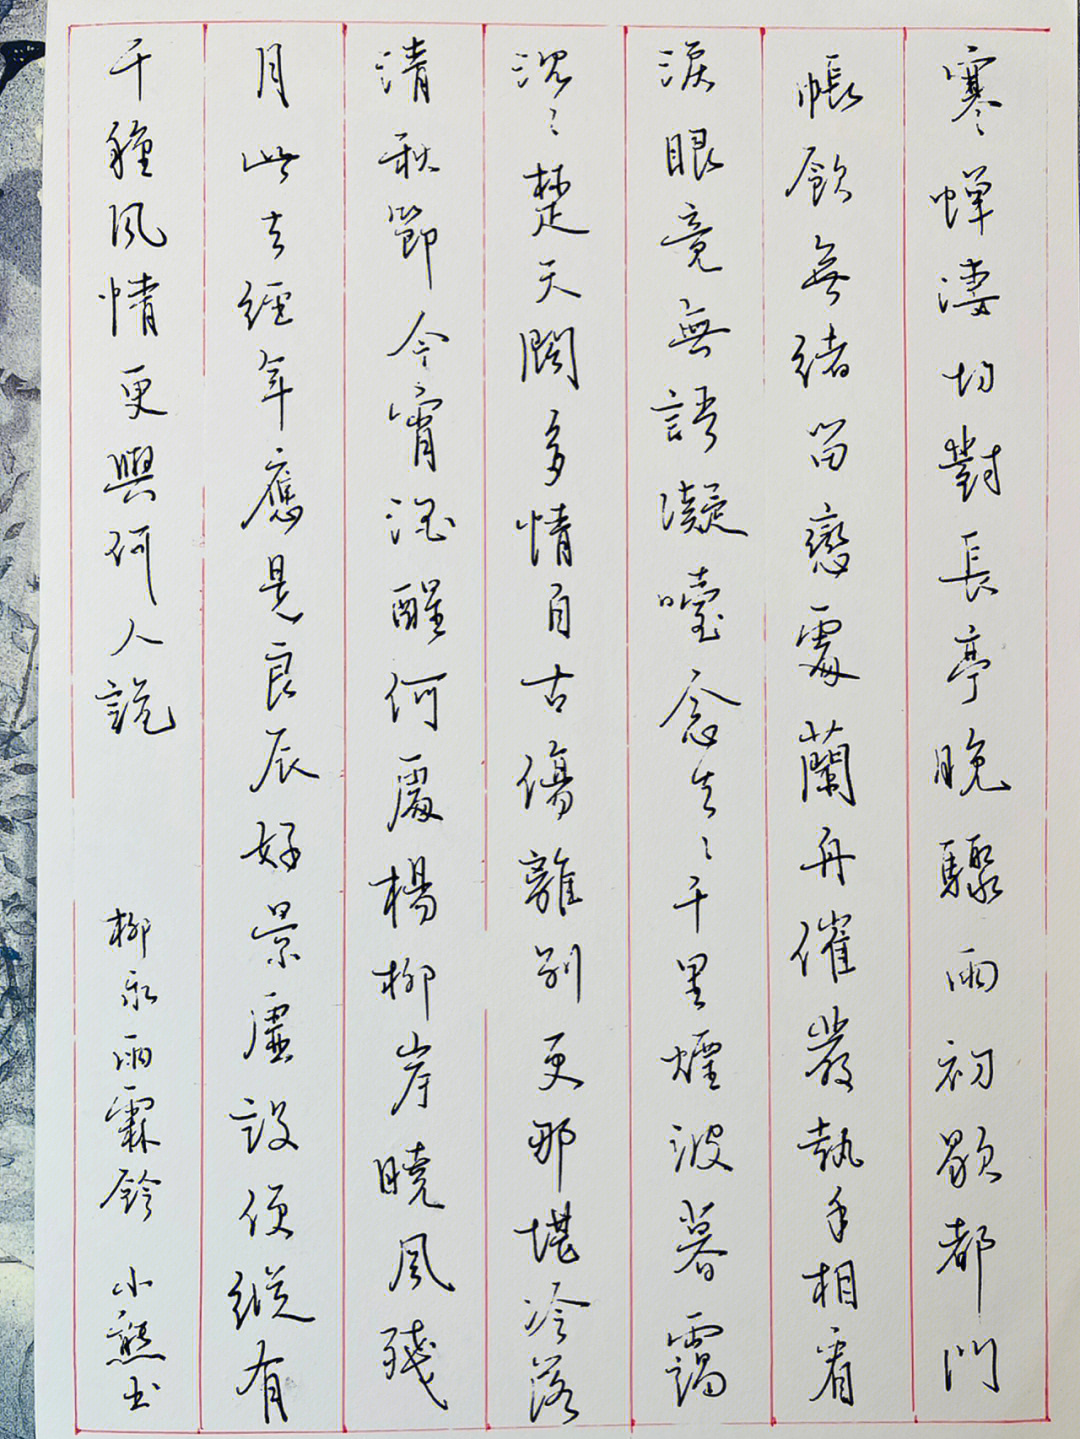 寒蟬淒切對長亭晚驟雨初歇都門
帳飲無緒留戀處蘭舟催發執手相看
淚眼竟無語凝噎念去〻千里煙波暮靄
沉〻楚天闊多情自古傷離別更那堪冷落
清秋節今宵酒醒何處楊柳岸曉風殘
月此去經年應是良辰好景虛設便縱有
千種風情更與何人說 柳永雨霖鈴 小熊书